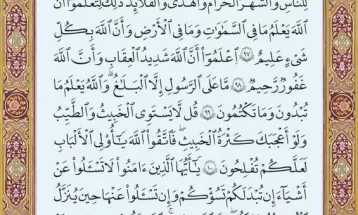 لِّلنَّاسِ وَٱلشَّهْرَ ٱلْحَرَامَ وَٱلْهَدْىَ وَٱلْقَلَٰٓئِدَ ذَٰلِكَ لِتَعْلَمُوٓا۟ أَنَّ
ٱللَّهَ يَعْلَمُ مَا فِى ٱلسَّمَٰوَٰتِ وَمَا فِى ٱلْأَرْضِ وَأَنَّ ٱللَّهَ بِكُلِّ
شَىْءٍ عَلِيمٌ ٩٧ ٱعْلَمُوٓا۟ أَنَّ ٱللَّهَ شَدِيدُ ٱلْعِقَابِ وَأَنَّ ٱللَّهَ
غَفُورٌ رَّحِيمٌ ٩٨ مَّا عَلَى ٱلرَّسُولِ إِلَّا ٱلْبَلَٰغُ وَٱللَّهُ يَعْلَمُ مَا
تُبْدُونَ وَمَا تَكْتُمُونَ ٩٩ قُل لَّا يَسْتَوِى ٱلْخَبِيثُ وَٱلطَّيِّبُ
وَلَوْ أَعْجَبَكَ كَثْرَةُ ٱلْخَبِيثِ فَٱتَّقُوا۟ ٱللَّهَ يَٰٓأُو۟لِى ٱلْأَلْبَٰبِ
لَعَلَّكُمْ تُفْلِحُونَ ١٠٠ يَٰٓأَيُّهَا ٱلَّذِينَ ءَامَنُوا۟ لَا تَسْـَٔلُوا۟ عَنْ
أَشْيَآءَ إِن تُبْدَ لَكُمْ تَسُؤْكُمْ وَإِن تَسْـَٔلُوا۟ عَنْهَا حِينَ يُنَزَّلُ